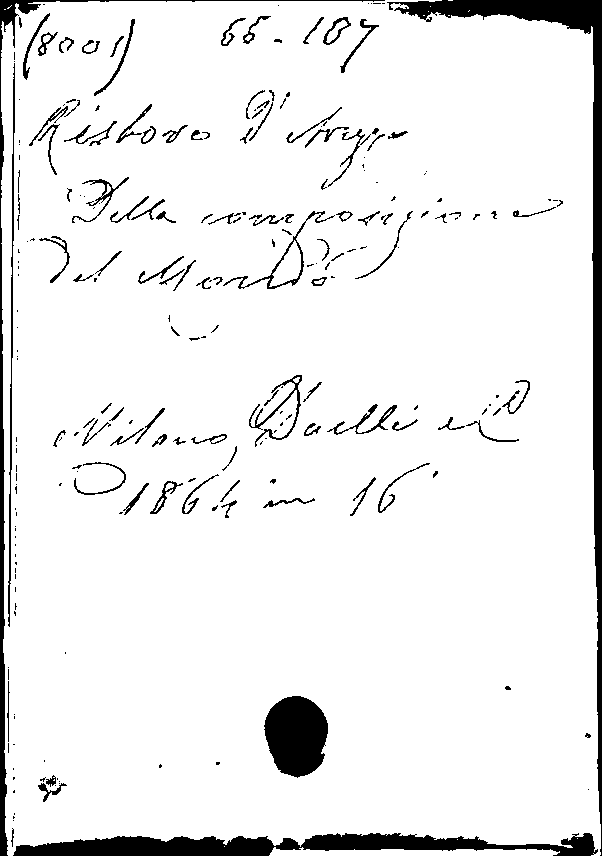 (8001) 66-187
Ristoro D'Arezzo
Della composizione
del Mondo
Milano, Daelli e C
1864 in 16°